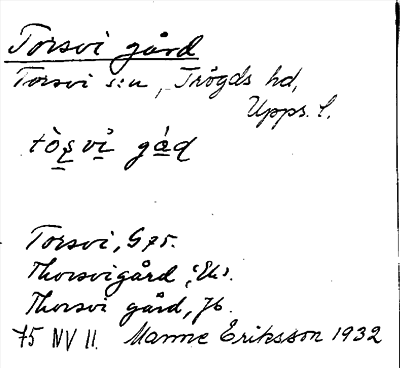 Torsvi gård
Torsvi s:n, Trögds hd,
Upps. l.
tò̱s̱vi̱̊ gá̱d
Torsvi, G 75.
Thorsvigård, Ek.
Thorsvi gård, Jb.
75 NV II. Manne Eriksson 1932